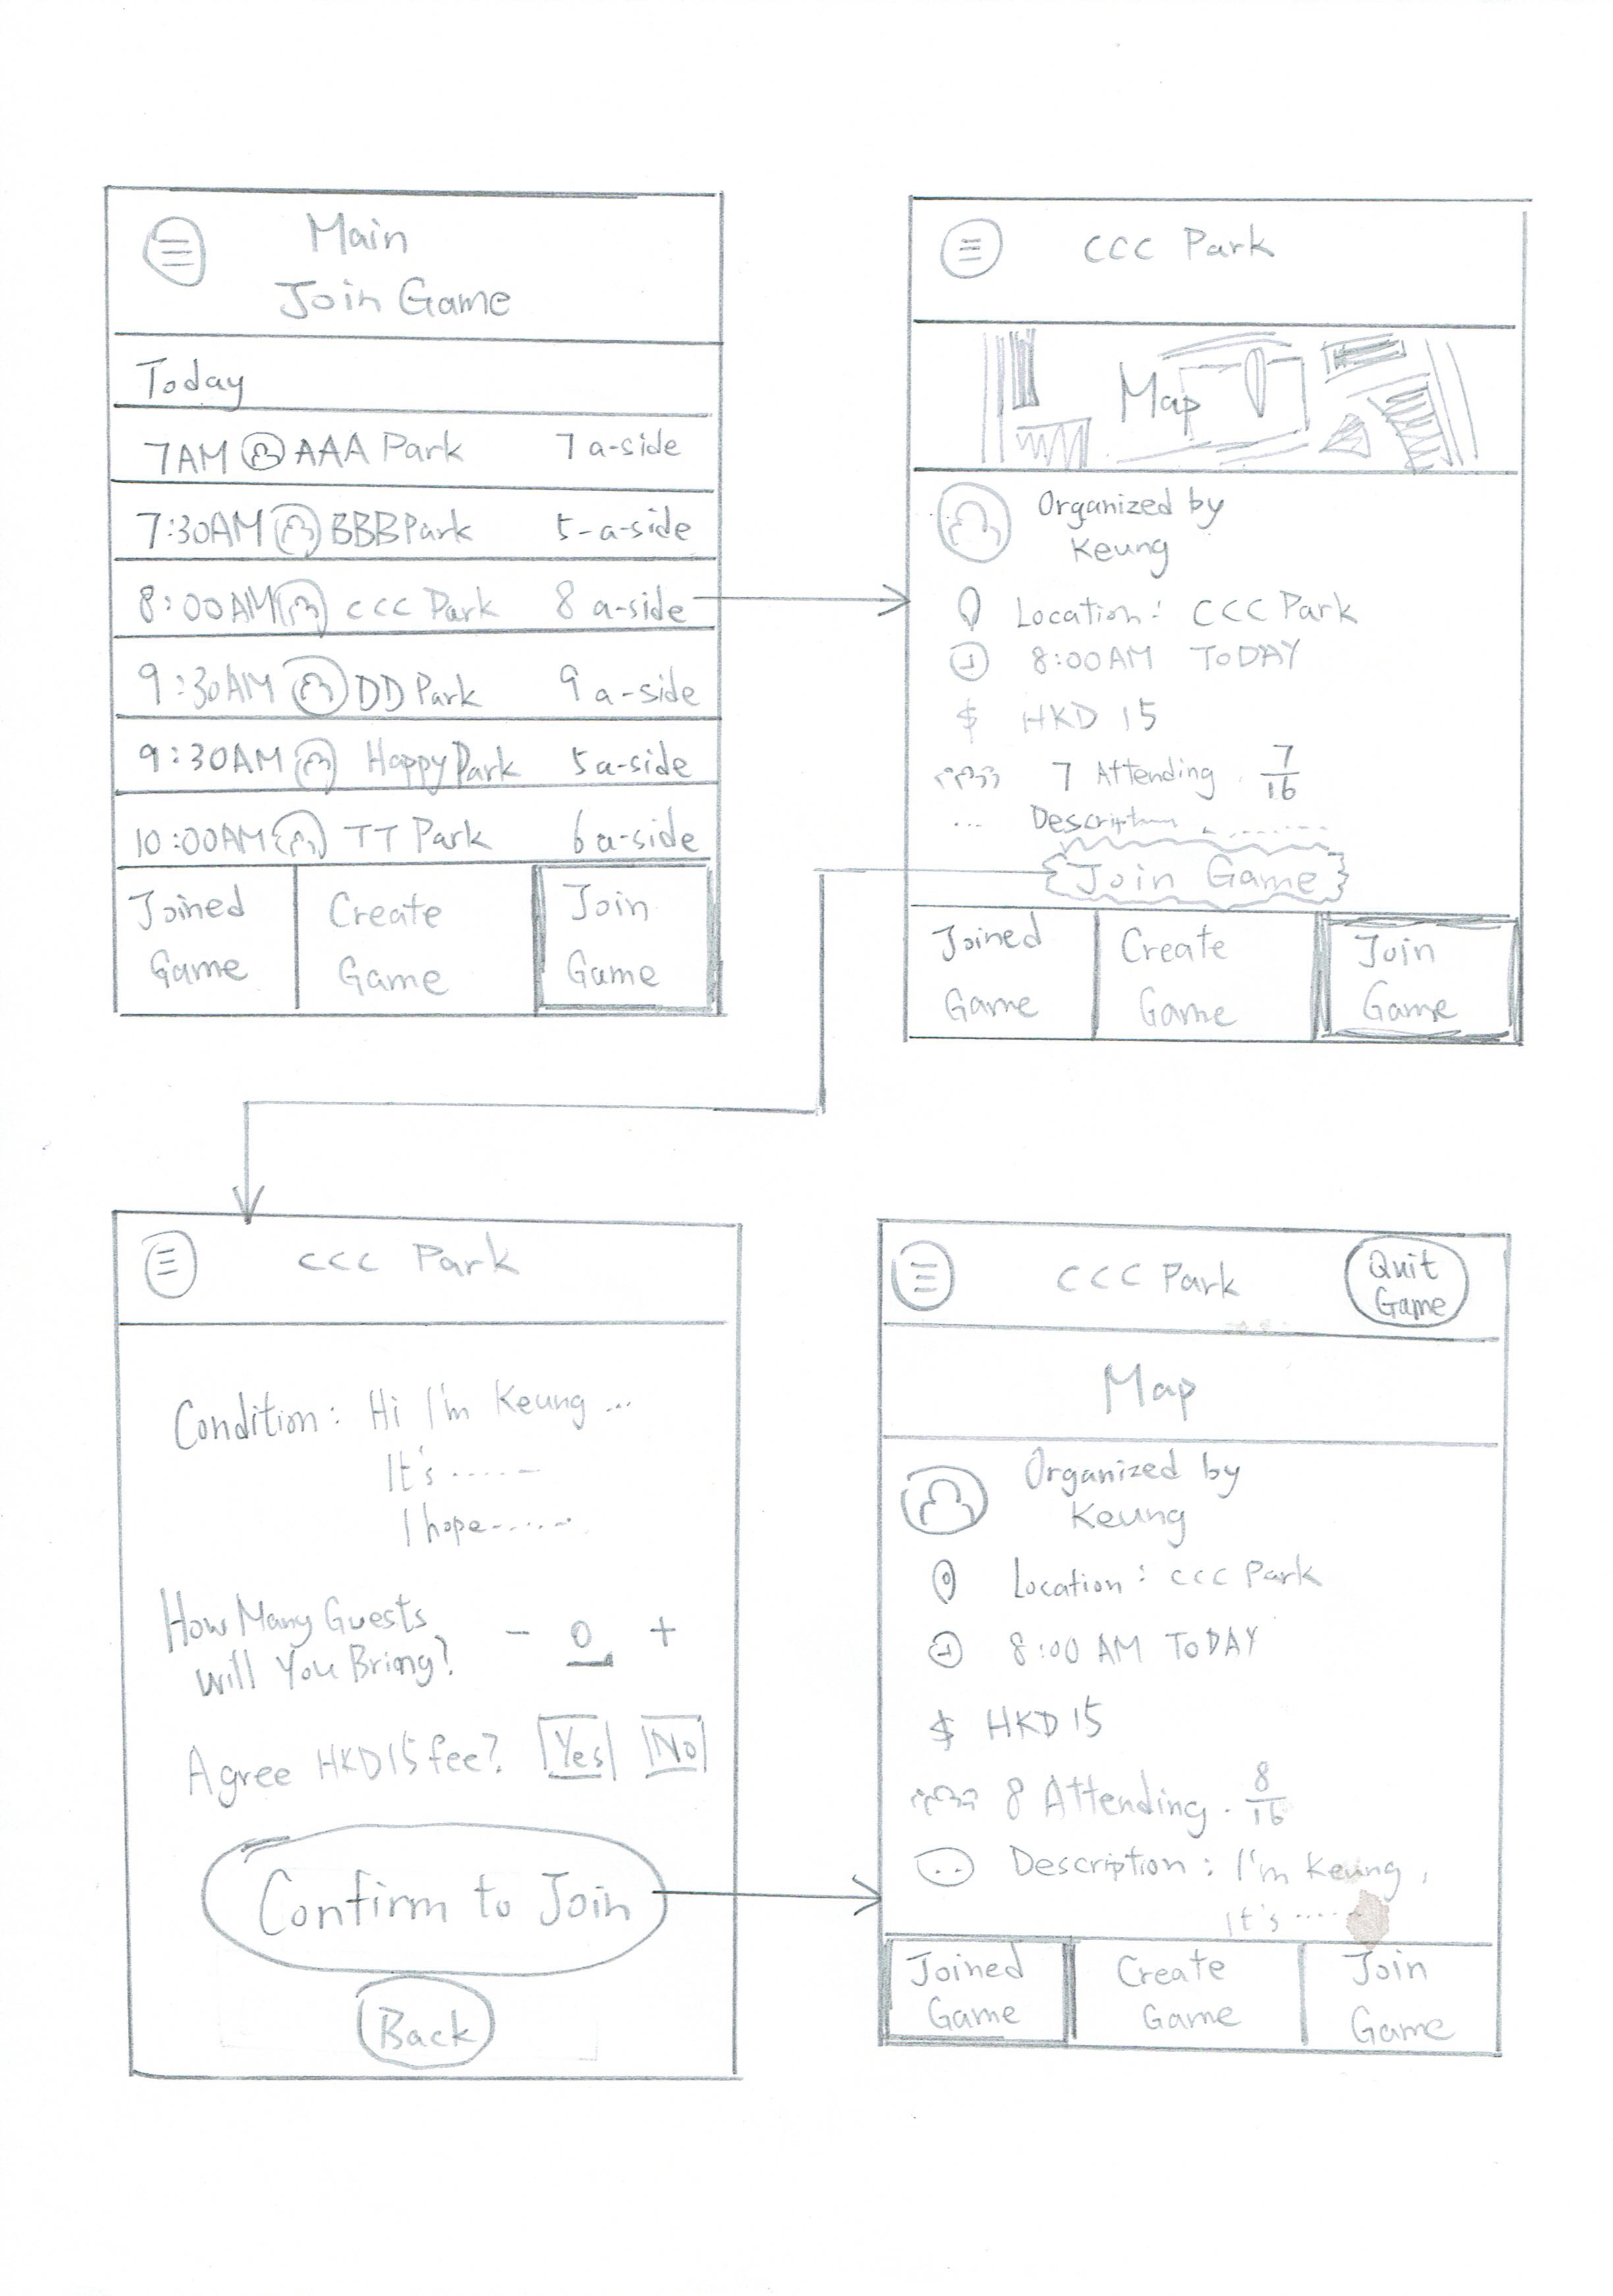 Main
Join Game
Today
7AM AAA Park 7 a-side
7:30AM BBB Park 5-a-side
8:00AM CCC Park 8 a-side
9:30AM DD Park 9 a-side
9:30AM Happy Park 5 a-side
10:00AM TT Park 6 a-side
Joined Game
Create Game
Join Game
CCC Park
Map
Organized by
Keung
Location: CCC Park
8:00AM TODAY
$ HKD 15
7 Attending. 7/16
... Description ........
Join Game
Joined Game
Create Game
Join Game
CCC Park
Condition: Hi I'm Keung ...
It's ......
I hope.......
How Many Guests
will You Bring? - 0 +
Agree HKD15 fee? Yes No
Confirm to Join
Back
CCC Park
Quit
Game
Map
Organized by
Keung
Location: CCC Park
8:00 AM TODAY
$ HKD 15
8 Attending. 8/16
Description: I'm Keung,
It's .....
Joined Game
Create Game
Join Game